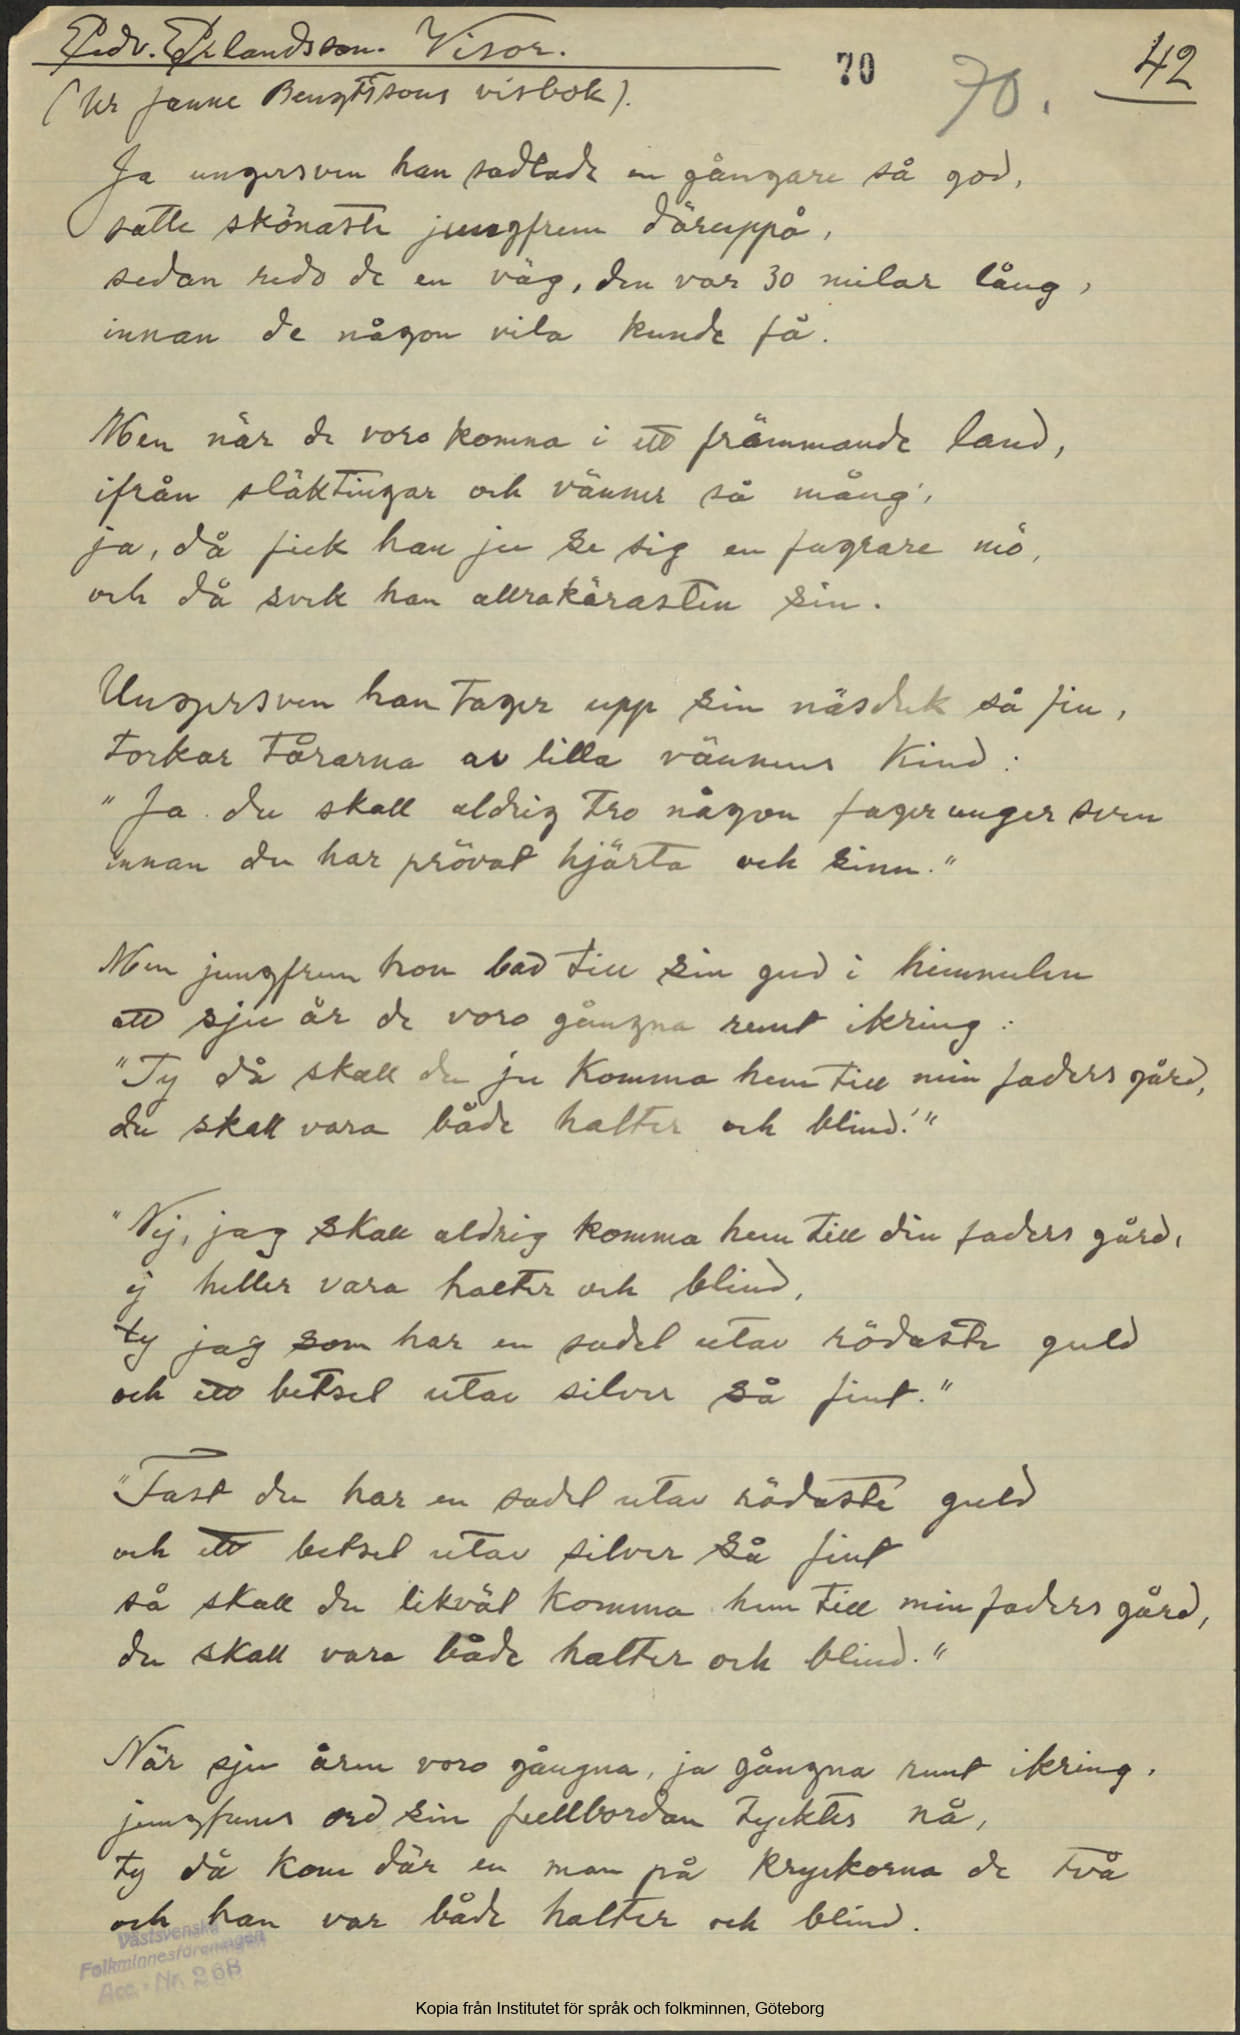 Edv. Erlandsson. Visor.
70
70.
42
(Ur Janne Bengtssons visbok).
Ja ungersven han sadlade en gångare så god,
satte skönaste jungfrun däruppå,
sedan redo de en väg, den var 30 milar lång,
innan de någon vila kunde få.
Men när de voro komna i ett främmande land,
ifrån släktingar och vänner så mång',
ja, då fick han ju se sig en fagrare mö,
och då svek han allrakärasten sin.
Ungersven han tager upp sin näsduk så fin,
torkar tårarna av lilla vännens kind:
"Ja du skall aldrig tro någon fager ungersven
innan du har prövat hjärta och sinn."
Men jungfrun hon bad till sin gud i himmelen
att sju år de voro gångna runt ikring:
"Ty då skall du ju komma hem till min faders gård,
du skall vara både halter och blind!"
"Nej, jag skall aldrig komma hem till din faders gård,
ej heller vara halter och blind,
ty jag som har en sadel utav rödaste guld
och ett betsel utav silver så fint."
"Fast du har en sadel utav rödaste guld
och ett betsel utav silver så fint
så skall du likväl komma hem till min faders gård,
du skall vara både halter och blind."
När sju åren voro gångna, ja gångna runt ikring,
jungfruns ord sin fullbordan tycktes nå,
ty då kom där en man på kryckorna de två
och han var både halter och blind.
Västsvenska
Folkminnesföreningen
Acc. Nr. 268
Kopia från Institutet för språk och folkminnen, Göteborg